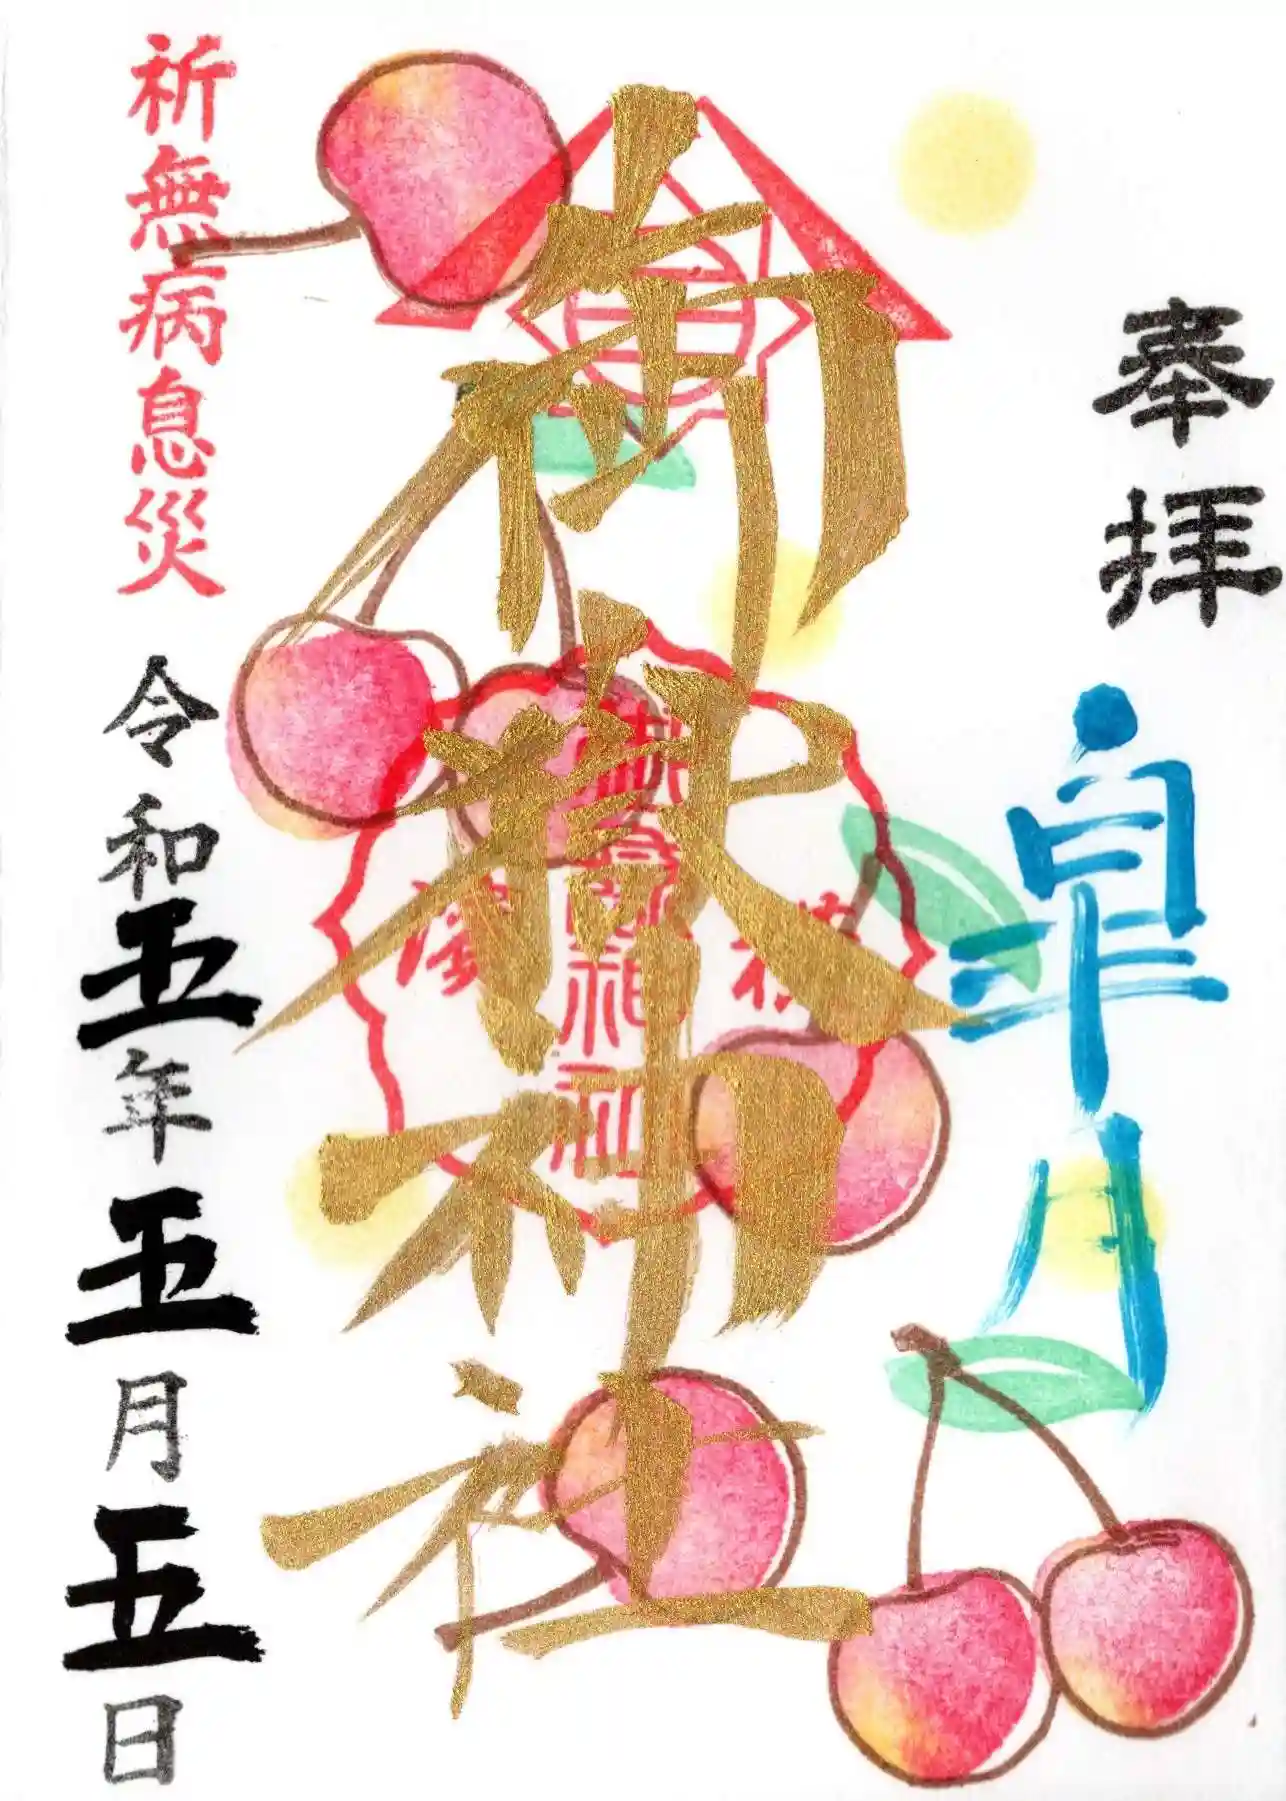 奉拝
皐月
御嶽神社
祈無病息災
令和五年五月五日